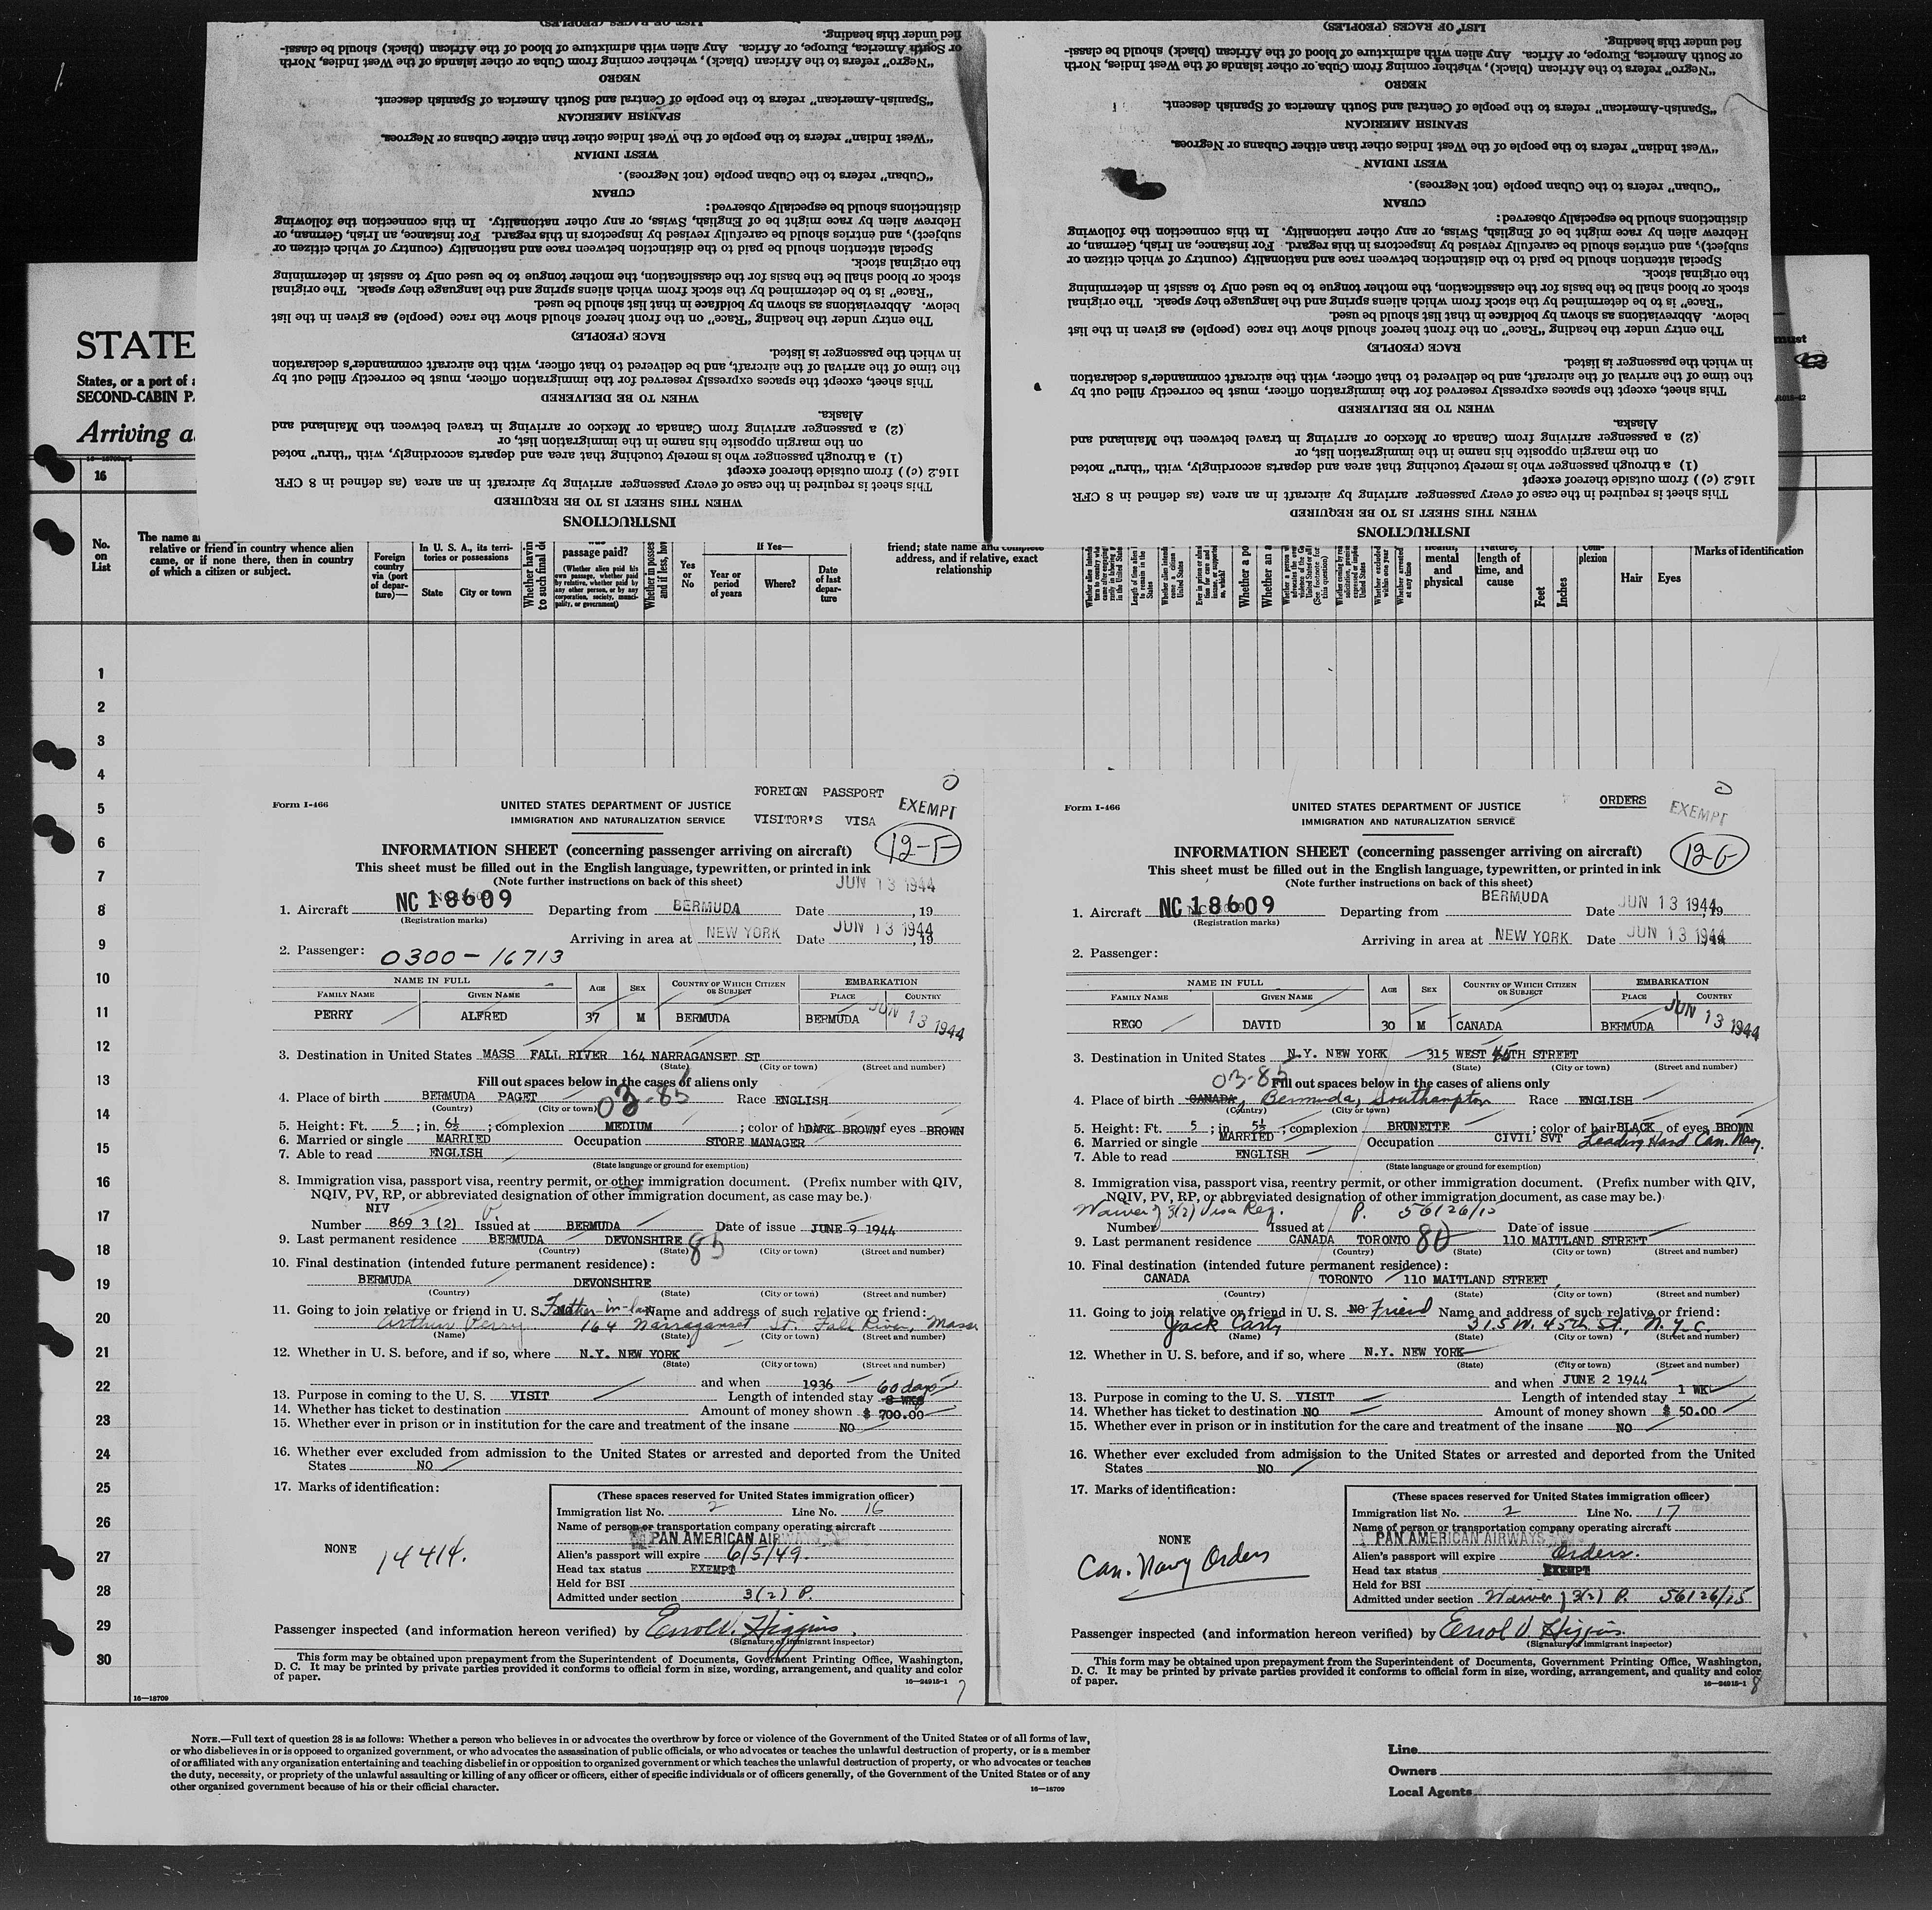 LIST OF RACES (PEOPLES)
fied under this heading.
or South America, Europe, or Africa. Any alien with admixture of blood of the African (black) should be classi-
"Negro" refers to the African (black), whether coming from Cuba or other islands of the West Indies, North
NEGRO
"Spanish-American" refers to the people of Central and South America of Spanish descent.
SPANISH AMERICAN
"West Indian" refers to the people of the West Indies other than either Cubans or Negroes.
WEST INDIAN
"Cuban" refers to the Cuban people (not Negroes).
CUBAN
distinctions should be especially observed:
Hebrew alien by race might be of English, Swiss, or any other nationality. In this connection the following
subject), and entries should be carefully revised by inspectors in this regard. For instance, an Irish, German, or
Special attention should be paid to the distinction between race and nationality (country of which citizen or
the original stock.
stock or blood shall be the basis for the classification, the mother tongue to be used only to assist in determining
"Race" is to be determined by the stock from which aliens spring and the language they speak. The original
below. Abbreviations as shown by boldface in that list should be used.
The entry under the heading "Race" on the front hereof should show the race (people) as given in the list
RACE (PEOPLE)
in which the passenger is listed.
the time of the arrival of the aircraft, and be delivered to that officer, with the aircraft commander's declaration
This sheet, except the spaces expressly reserved for the immigration officer, must be correctly filled out by
WHEN TO BE DELIVERED
Alaska.
(2) a passenger arriving from Canada or Mexico or arriving in travel between the Mainland and
on the margin opposite his name in the immigration list, or
(1) a through passenger who is merely touching that area and departs accordingly, with "thru" noted
116.2 (c)) from outside thereof except
This sheet is required in the case of every passenger arriving by aircraft in an area (as defined in 8 CFR
WHEN THIS SHEET IS TO BE REQUIRED
INSTRUCTIONS
LIST OF RACES (PEOPLES)
fied under this heading.
or South America, Europe, or Africa. Any alien with admixture of blood of the African (black) should be classi-
"Negro" refers to the African (black), whether coming from Cuba or other islands of the West Indies, North
NEGRO
"Spanish-American" refers to the people of Central and South America of Spanish descent.
SPANISH AMERICAN
"West Indian" refers to the people of the West Indies other than either Cubans or Negroes.
WEST INDIAN
"Cuban" refers to the Cuban people (not Negroes).
CUBAN
distinctions should be especially observed:
Hebrew alien by race might be of English, Swiss, or any other nationality. In this connection the following
subject), and entries should be carefully revised by inspectors in this regard. For instance, an Irish, German, or
Special attention should be paid to the distinction between race and nationality (country of which citizen or
the original stock.
stock or blood shall be the basis for the classification, the mother tongue to be used only to assist in determining
"Race" is to be determined by the stock from which aliens spring and the language they speak. The original
below. Abbreviations as shown by boldface in that list should be used.
The entry under the heading "Race" on the front hereof should show the race (people) as given in the list
RACE (PEOPLE)
in which the passenger is listed.
the time of the arrival of the aircraft, and be delivered to that officer, with the aircraft commander's declaration
This sheet, except the spaces expressly reserved for the immigration officer, must be correctly filled out by
WHEN TO BE DELIVERED
Alaska.
(2) a passenger arriving from Canada or Mexico or arriving in travel between the Mainland and
on the margin opposite his name in the immigration list, or
(1) a through passenger who is merely touching that area and departs accordingly, with "thru" noted
116.2 (c)) from outside thereof except
This sheet is required in the case of every passenger arriving by aircraft in an area (as defined in 8 CFR
WHEN THIS SHEET IS TO BE REQUIRED
INSTRUCTIONS
STATE
States, or a port of a
SECOND-CABIN P
Arriving a
must
16
No. on List
The name a
relative or friend in country whence alien
came, or if none there, then in country
of which a citizen or subject.
Foreign country via (port of departure)—
In U. S. A., its territories or possessions
State
City or town
passage paid?
(Whether alien paid his own passage, whether paid by relative, whether paid by any other person, or by any corporation, society, municipality, or government)
Yes or No
If Yes—
Year or period of years
Where?
Date of last departure
friend; state name and complete
address, and if relative, exact
relationship
mental and physical
length of time, and cause
Feet
Inches
Hair
Eyes
Marks of identification
1
2
3
4
5
6
7
8
9
10
11
12
13
14
15
16
17
18
19
20
21
22
23
24
25
26
27
28
29
30
16—18709
Form I-466
FOREIGN PASSPORT
VISITOR'S VISA
EXEMPT
12-F
UNITED STATES DEPARTMENT OF JUSTICE
IMMIGRATION AND NATURALIZATION SERVICE
INFORMATION SHEET (concerning passenger arriving on aircraft)
This sheet must be filled out in the English language, typewritten, or printed in ink
(Note further instructions on back of this sheet)
JUN 13 1944
1. Aircraft NC 18609 Departing from BERMUDA Date , 19
(Registration marks)
Arriving in area at NEW YORK Date JUN 13 1944 , 19
2. Passenger: 0300-16713
NAME IN FULL
FAMILY NAME GIVEN NAME AGE SEX COUNTRY OF WHICH CITIZEN OR SUBJECT EMBARKATION PLACE COUNTRY
PERRY ALFRED 37 M BERMUDA BERMUDA JUN 13 1944
3. Destination in United States MASS FALL RIVER 164 NARRAGANSET ST
(State) (City or town) (Street and number)
Fill out spaces below in the cases of aliens only
4. Place of birth BERMUDA PAGET 03-85 Race ENGLISH
(Country) (City or town)
5. Height: Ft. 5 ; in. 6½ ; complexion MEDIUM ; color of hair DARK BROWN of eyes BROWN
6. Married or single MARRIED Occupation STORE MANAGER
7. Able to read ENGLISH
(State language or ground for exemption)
8. Immigration visa, passport visa, reentry permit, or other immigration document. (Prefix number with QIV,
NQIV, PV, RP, or abbreviated designation of other immigration document, as case may be.)
NIV
Number 869 3 (2) Issued at BERMUDA Date of issue JUNE 9 1944
9. Last permanent residence BERMUDA DEVONSHIRE 85
(Country) (State) (City or town) (Street and number)
10. Final destination (intended future permanent residence):
BERMUDA DEVONSHIRE
(Country) (State) (City or town) (Street and number)
11. Going to join relative or friend in U. S. Father-in-law Name and address of such relative or friend:
Arthur Perry 164 Narraganset St. Fall River, Mass.
(Name) (State) (City or town) (Street and number)
12. Whether in U. S. before, and if so, where N.Y. NEW YORK
(State) (City or town) (Street and number)
and when 1936
13. Purpose in coming to the U. S. VISIT Length of intended stay 8 WKS 60 days
14. Whether has ticket to destination Amount of money shown $ 700.00
15. Whether ever in prison or in institution for the care and treatment of the insane NO
16. Whether ever excluded from admission to the United States or arrested and deported from the United
States NO
17. Marks of identification:
NONE 14414.
(These spaces reserved for United States immigration officer)
Immigration list No. 2 Line No. 16
Name of person or transportation company operating aircraft
PAN AMERICAN AIRWAYS
Alien's passport will expire 6/5/49.
Head tax status EXEMPT
Held for BSI
Admitted under section 3(2) P.
Passenger inspected (and information hereon verified) by Errol V. Higgins.
(Signature of immigrant inspector)
This form may be obtained upon prepayment from the Superintendent of Documents, Government Printing Office, Washington,
D. C. It may be printed by private parties provided it conforms to official form in size, wording, arrangement, and quality and color
of paper.
16—24915-1
7
Form I-466
ORDERS
EXEMPT
12-G
UNITED STATES DEPARTMENT OF JUSTICE
IMMIGRATION AND NATURALIZATION SERVICE
INFORMATION SHEET (concerning passenger arriving on aircraft)
This sheet must be filled out in the English language, typewritten, or printed in ink
(Note further instructions on back of this sheet)
1. Aircraft NC 18609 Departing from BERMUDA Date JUN 13 1944, 19
(Registration marks)
Arriving in area at NEW YORK Date JUN 13 1944
2. Passenger:
NAME IN FULL
FAMILY NAME GIVEN NAME AGE SEX COUNTRY OF WHICH CITIZEN OR SUBJECT EMBARKATION PLACE COUNTRY
REGO DAVID 30 M CANADA BERMUDA JUN 13 1944
3. Destination in United States N.Y. NEW YORK 315 WEST 45TH STREET
(State) (City or town) (Street and number)
03-85 Fill out spaces below in the cases of aliens only
4. Place of birth CANADA, Bermuda, Southampton Race ENGLISH
(Country) (City or town)
5. Height: Ft. 5 ; in. 5½ ; complexion BRUNETTE ; color of hair BLACK of eyes BROWN
6. Married or single MARRIED Occupation CIVIL SVT Leading Hand Can. Navy.
7. Able to read ENGLISH
(State language or ground for exemption)
8. Immigration visa, passport visa, reentry permit, or other immigration document. (Prefix number with QIV,
NQIV, PV, RP, or abbreviated designation of other immigration document, as case may be.)
Waiver of 3(2) Visa Req. P. 56126/15
Number Issued at Date of issue
9. Last permanent residence CANADA TORONTO 80 110 MAITLAND STREET
(Country) (State) (City or town) (Street and number)
10. Final destination (intended future permanent residence):
CANADA TORONTO 110 MAITLAND STREET
(Country) (State) (City or town) (Street and number)
11. Going to join relative or friend in U. S. NO Friend Name and address of such relative or friend:
Jack Carty 315 W. 45th St., N.Y.C.
(Name) (State) (City or town) (Street and number)
12. Whether in U. S. before, and if so, where N.Y. NEW YORK
(State) (City or town) (Street and number)
and when JUNE 2 1944
13. Purpose in coming to the U. S. VISIT Length of intended stay 1 WK
14. Whether has ticket to destination NO Amount of money shown $ 50.00
15. Whether ever in prison or in institution for the care and treatment of the insane NO
16. Whether ever excluded from admission to the United States or arrested and deported from the United
States NO
17. Marks of identification:
NONE
Can. Navy Orders
(These spaces reserved for United States immigration officer)
Immigration list No. 2 Line No. 17
Name of person or transportation company operating aircraft
PAN AMERICAN AIRWAYS
Alien's passport will expire Orders.
Head tax status EXEMPT
Held for BSI
Admitted under section Waiver of 3(2) P. 56126/15
Passenger inspected (and information hereon verified) by Errol V. Higgins.
(Signature of immigrant inspector)
This form may be obtained upon prepayment from the Superintendent of Documents, Government Printing Office, Washington,
D. C. It may be printed by private parties provided it conforms to official form in size, wording, arrangement, and quality and color
of paper.
16—24915-1
8
NOTE.—Full text of question 28 is as follows: Whether a person who believes in or advocates the overthrow by force or violence of the Government of the United States or of all forms of law,
or who disbelieves in or is opposed to organized government, or who advocates the assassination of public officials, or who advocates or teaches the unlawful destruction of property, or is a member
of or affiliated with any organization entertaining and teaching disbelief in or opposition to organized government or which teaches the unlawful destruction of property, or who advocates or teaches
the duty, necessity, or propriety of the unlawful assaulting or killing of any officer or officers, either of specific individuals or of officers generally, of the Government of the United States or of any
other organized government because of his or their official character.
16—18709
Line
Owners
Local Agents